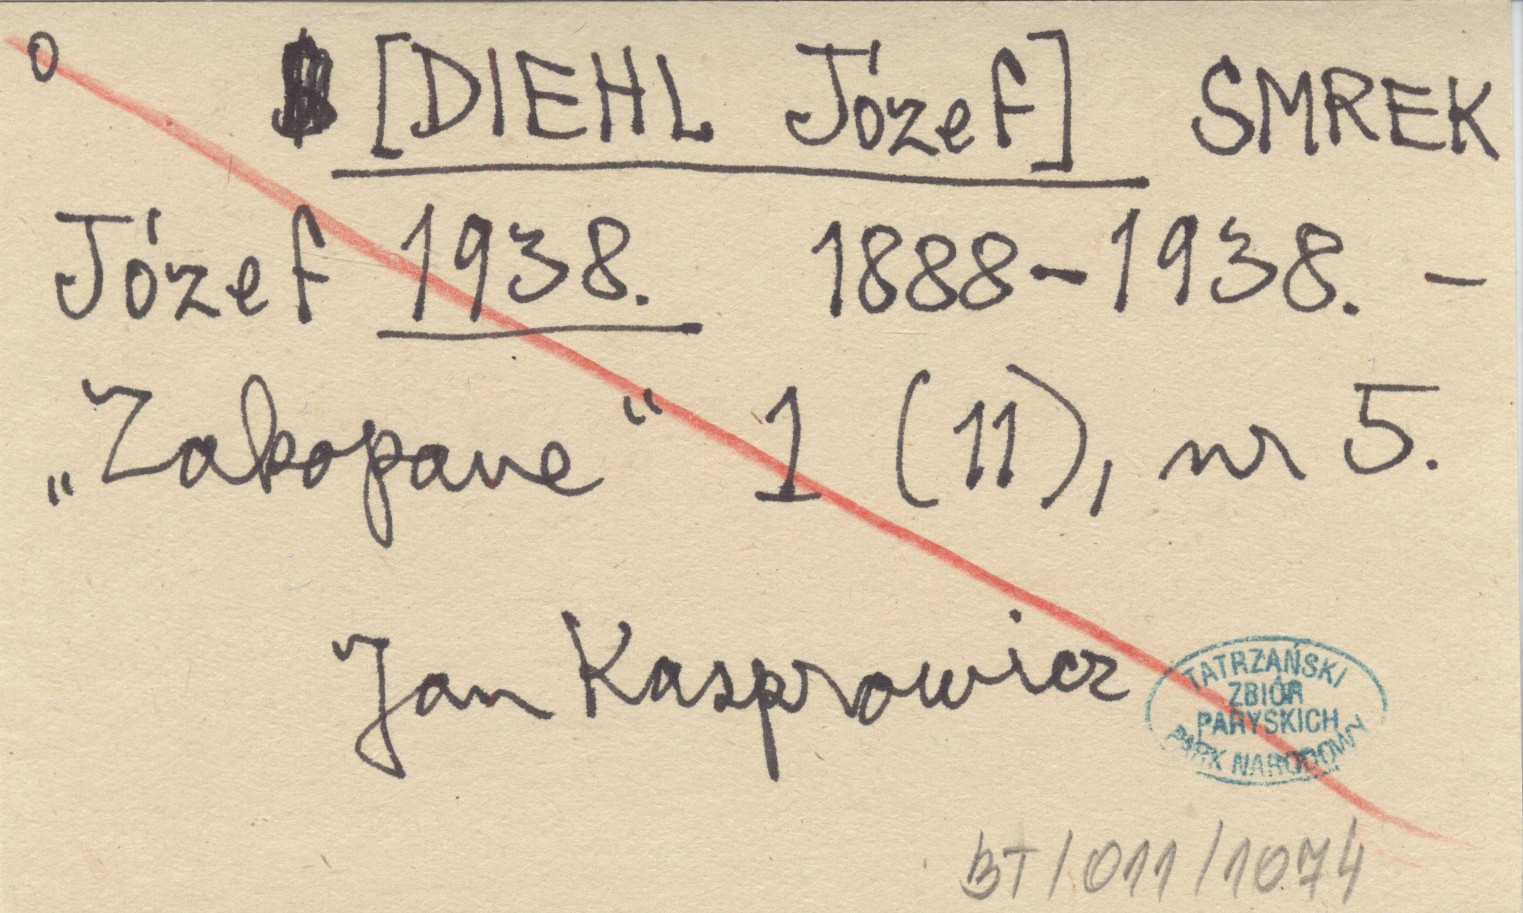 o [DIEHL Józef] SMREK
Józef 1938. 1888-1938. -
„Zakopane“ 1 (11), nr 5.
Jan Kasprowicz
TATRZAŃSKI
ZBIÓR
PARYSKICH
PARK NARODOWY
BT/011/1074